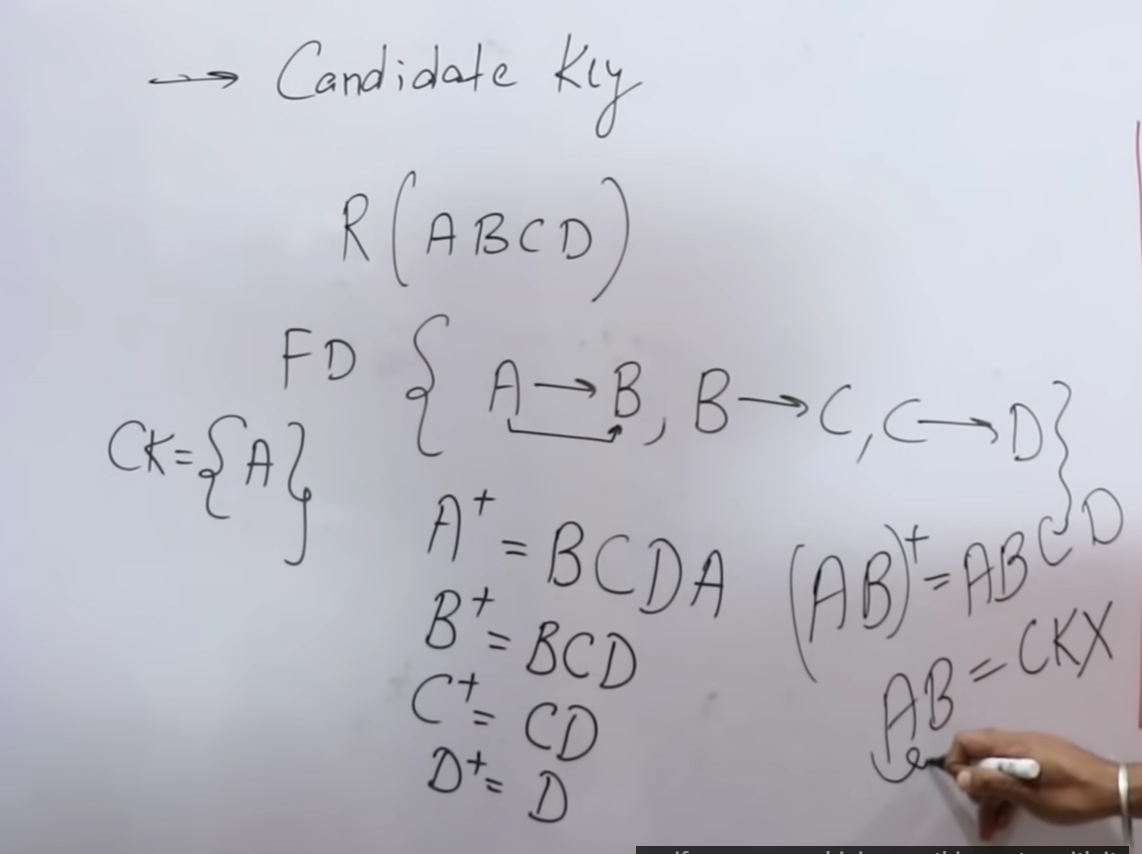 → Candidate Key
R(ABCD)
FD { A→B, B→C, C→D}
CK={A}
A⁺ = BCDA
B⁺= BCD
C⁺= CD
D⁺= D
(AB)⁺= ABCD
AB = CKX